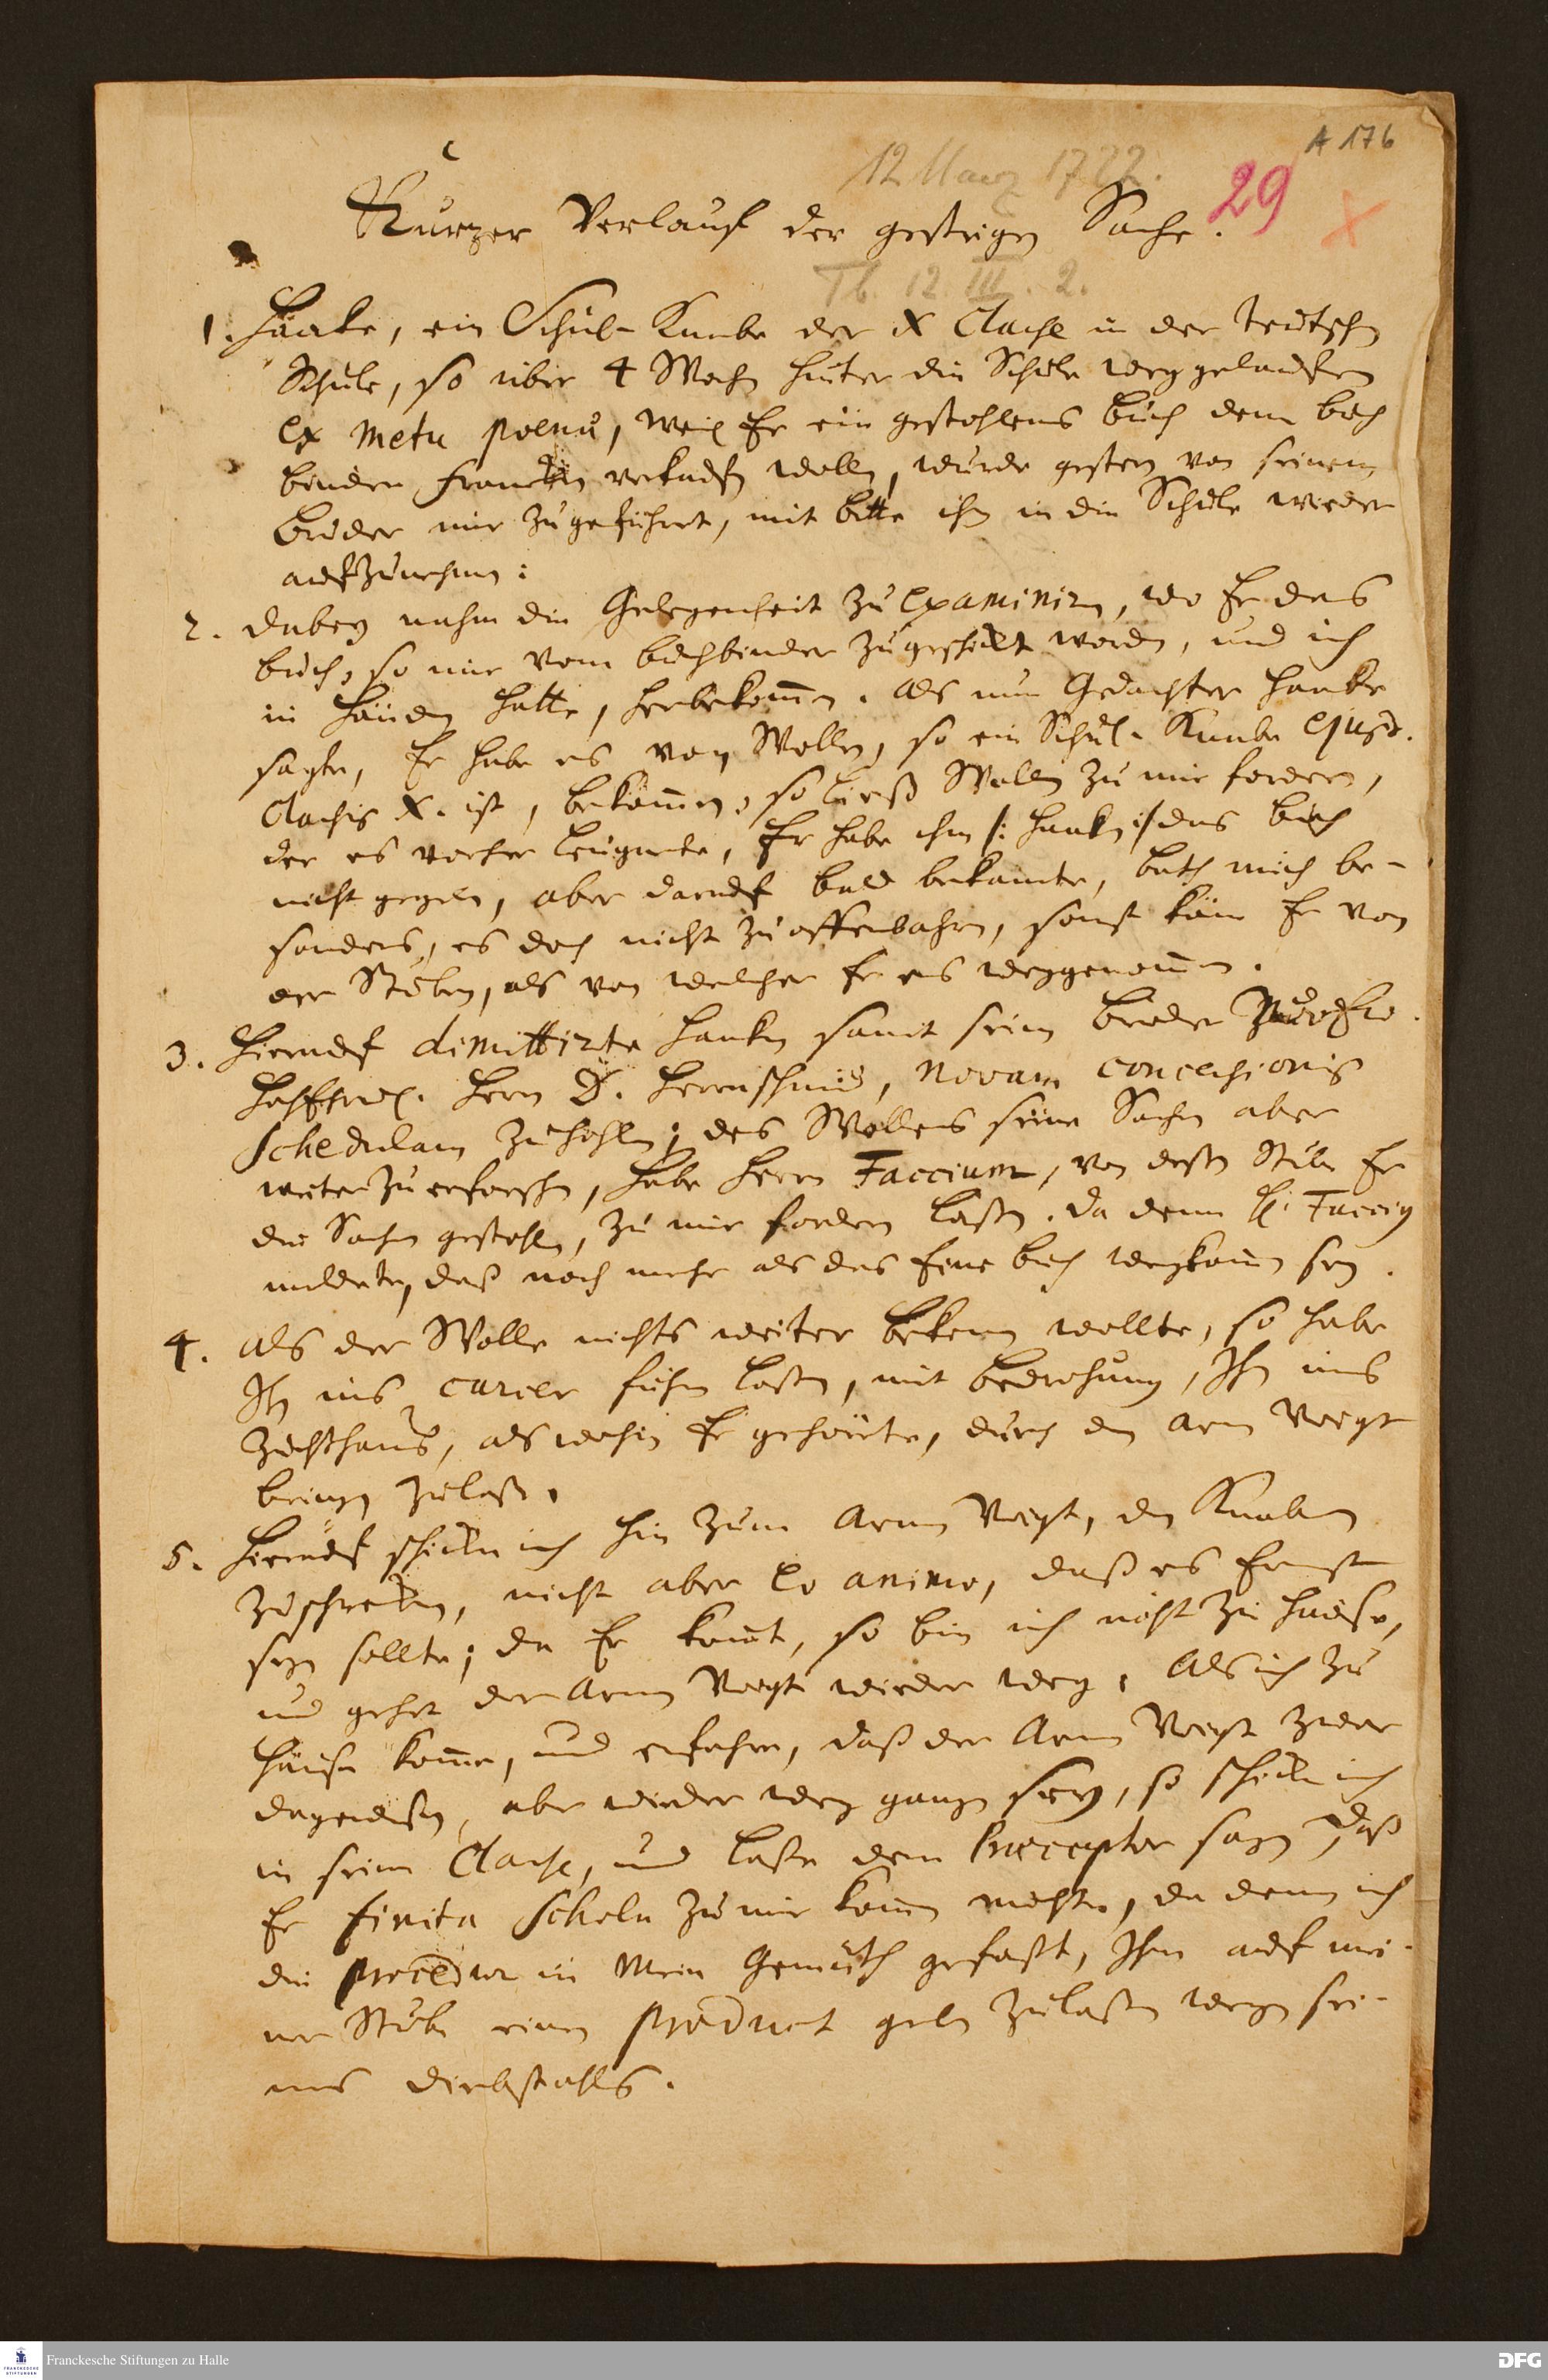 A 176
12 März 1722.
29
Kurzer Verlauf der gestrigen Sache.
Tb. 12. III. 2.
1. Hanke, ein Schul-Knabe der X Classe in der teutschen
Schule, so über 4 Wochen hinter die Schule weggelauffen
ex metu poenæ, weil Er ein gestohlens buch dem buch
binder Francken verkauffen wollen, wurde gestern von seinem
bruder mir zugeführet, mit bitte ihn in die Schule wieder
auffzunehmen:
2. dabey nahm die Gelegenheit zu examiniren, wo Er das
buch, so mir vom buchbinder zugeschickt worden, und ich
in händen hatte, herbekommen. Als nun Gedachter Hanke
sagte, Er habe es von Wollen, so ein Schul-Knabe ejusd.
Classis X. ist, bekommen, so ließ Wollen zu mir fordern,
der es vorher leugnete, Er habe ihm /: Hanken :/ das buch
nicht gegeben, aber darauf bald bekante, bath mich be-
sonders, es doch nicht zu offenbahren, sonst käme Er von
der Stuben, als von welcher Er es weggenommen.
3. Hierauf dimittirte Hanken samt seinem bruder zu
Herrn D. Herrnschmid, novam concessionis
schedulam zu hohlen; des Wollens seine Sachen aber
weiter zu erforschen, habe Herrn Faccium, von deßen Stube Er
die Sachen gestohlen, zu mir fordern laßen. da denn H. Faccius
meldete, daß noch mehr als das Eine buch wegkommen sey.
4. Als der Wolle nichts weiter bekennen wollte, so habe
Ihn ins carcer führen laßen, mit bedrohung, Ihn ins
Zuchthaus, als wohin Er gehörte, durch den Arm Voigt
bringen zulaßen.
5. Hierauf schicke ich hin zum Armen Voigt, den Knaben
zuschrecken, nicht aber eo animo, daß es Ernst
seyn sollte; da Er kommt, so bin ich nicht zu hause,
und gehet der Armen Voigt wieder weg. Als ich zu
hause komme, und erfahre, daß der Armen Voigt zwar
dagewesen, aber wieder weg gangen sey, so schicke ich
in seine Classe, und laße dem Præceptor sagen, daß
Er finita Schola zu mir kommen möchte, da denn ich
die procedur in mein Gemüth gefaßt, Ihm auf mei-
ner Stube einen product geben zulaßen wegen sei-
nes diebstahls.
Franckesche Stiftungen zu Halle
DFG